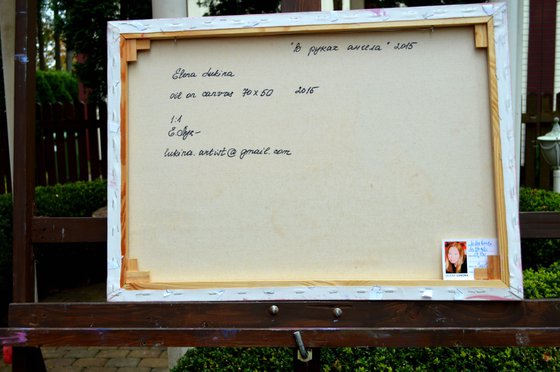 "В руках ангела" 2015
Elena Lukina
oil on canvas 70x50 2015
1:1
lukina.artist@gmail.com